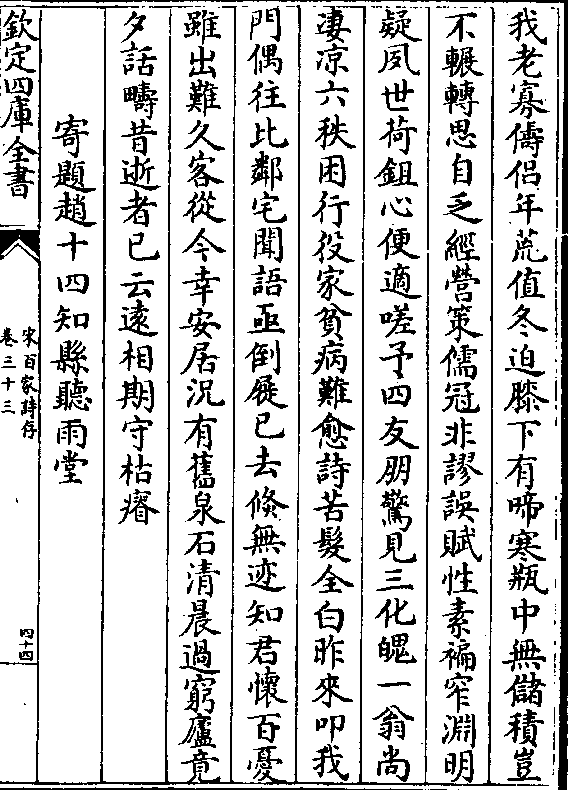 我老寡儔侶年荒值冬迫膝下有啼寒瓶中無儲積豈
不輾轉思自乏經營策儒冠非謬誤賦性素褊窄淵明
疑夙世荷鉏心便適嗟予四友朋驚見三化魄一翁尚
淒凉六秩困行役家貧病難愈詩苦髮全白昨來叩我
門偶往比鄰宅聞語亟倒屣已去倏無迹知君懷百憂
雖出難久客從今幸安居況有舊泉石清晨過窮廬竟
夕話疇昔逝者已云遠相期守枯瘠
寄題趙十四知縣聽雨堂
欽定四庫全書
宋百家詩存
卷三十三
四十四